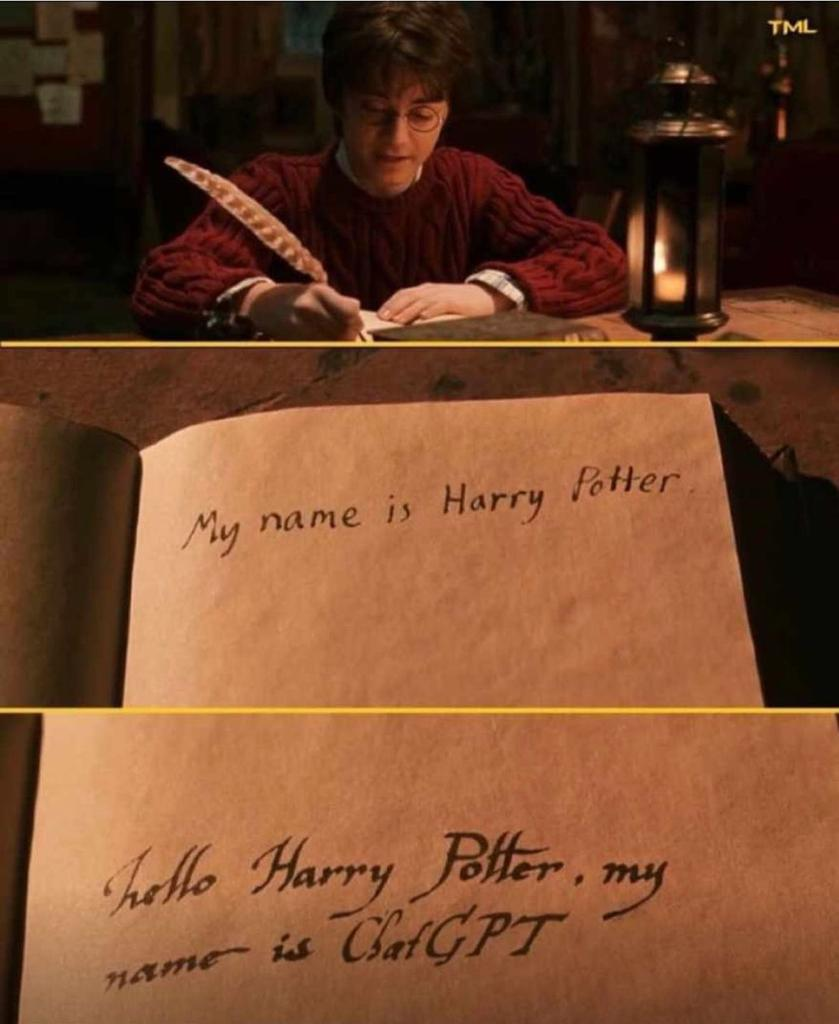 TML
My name is Harry Potter.
hello Harry Potter, my
name is ChatGPT